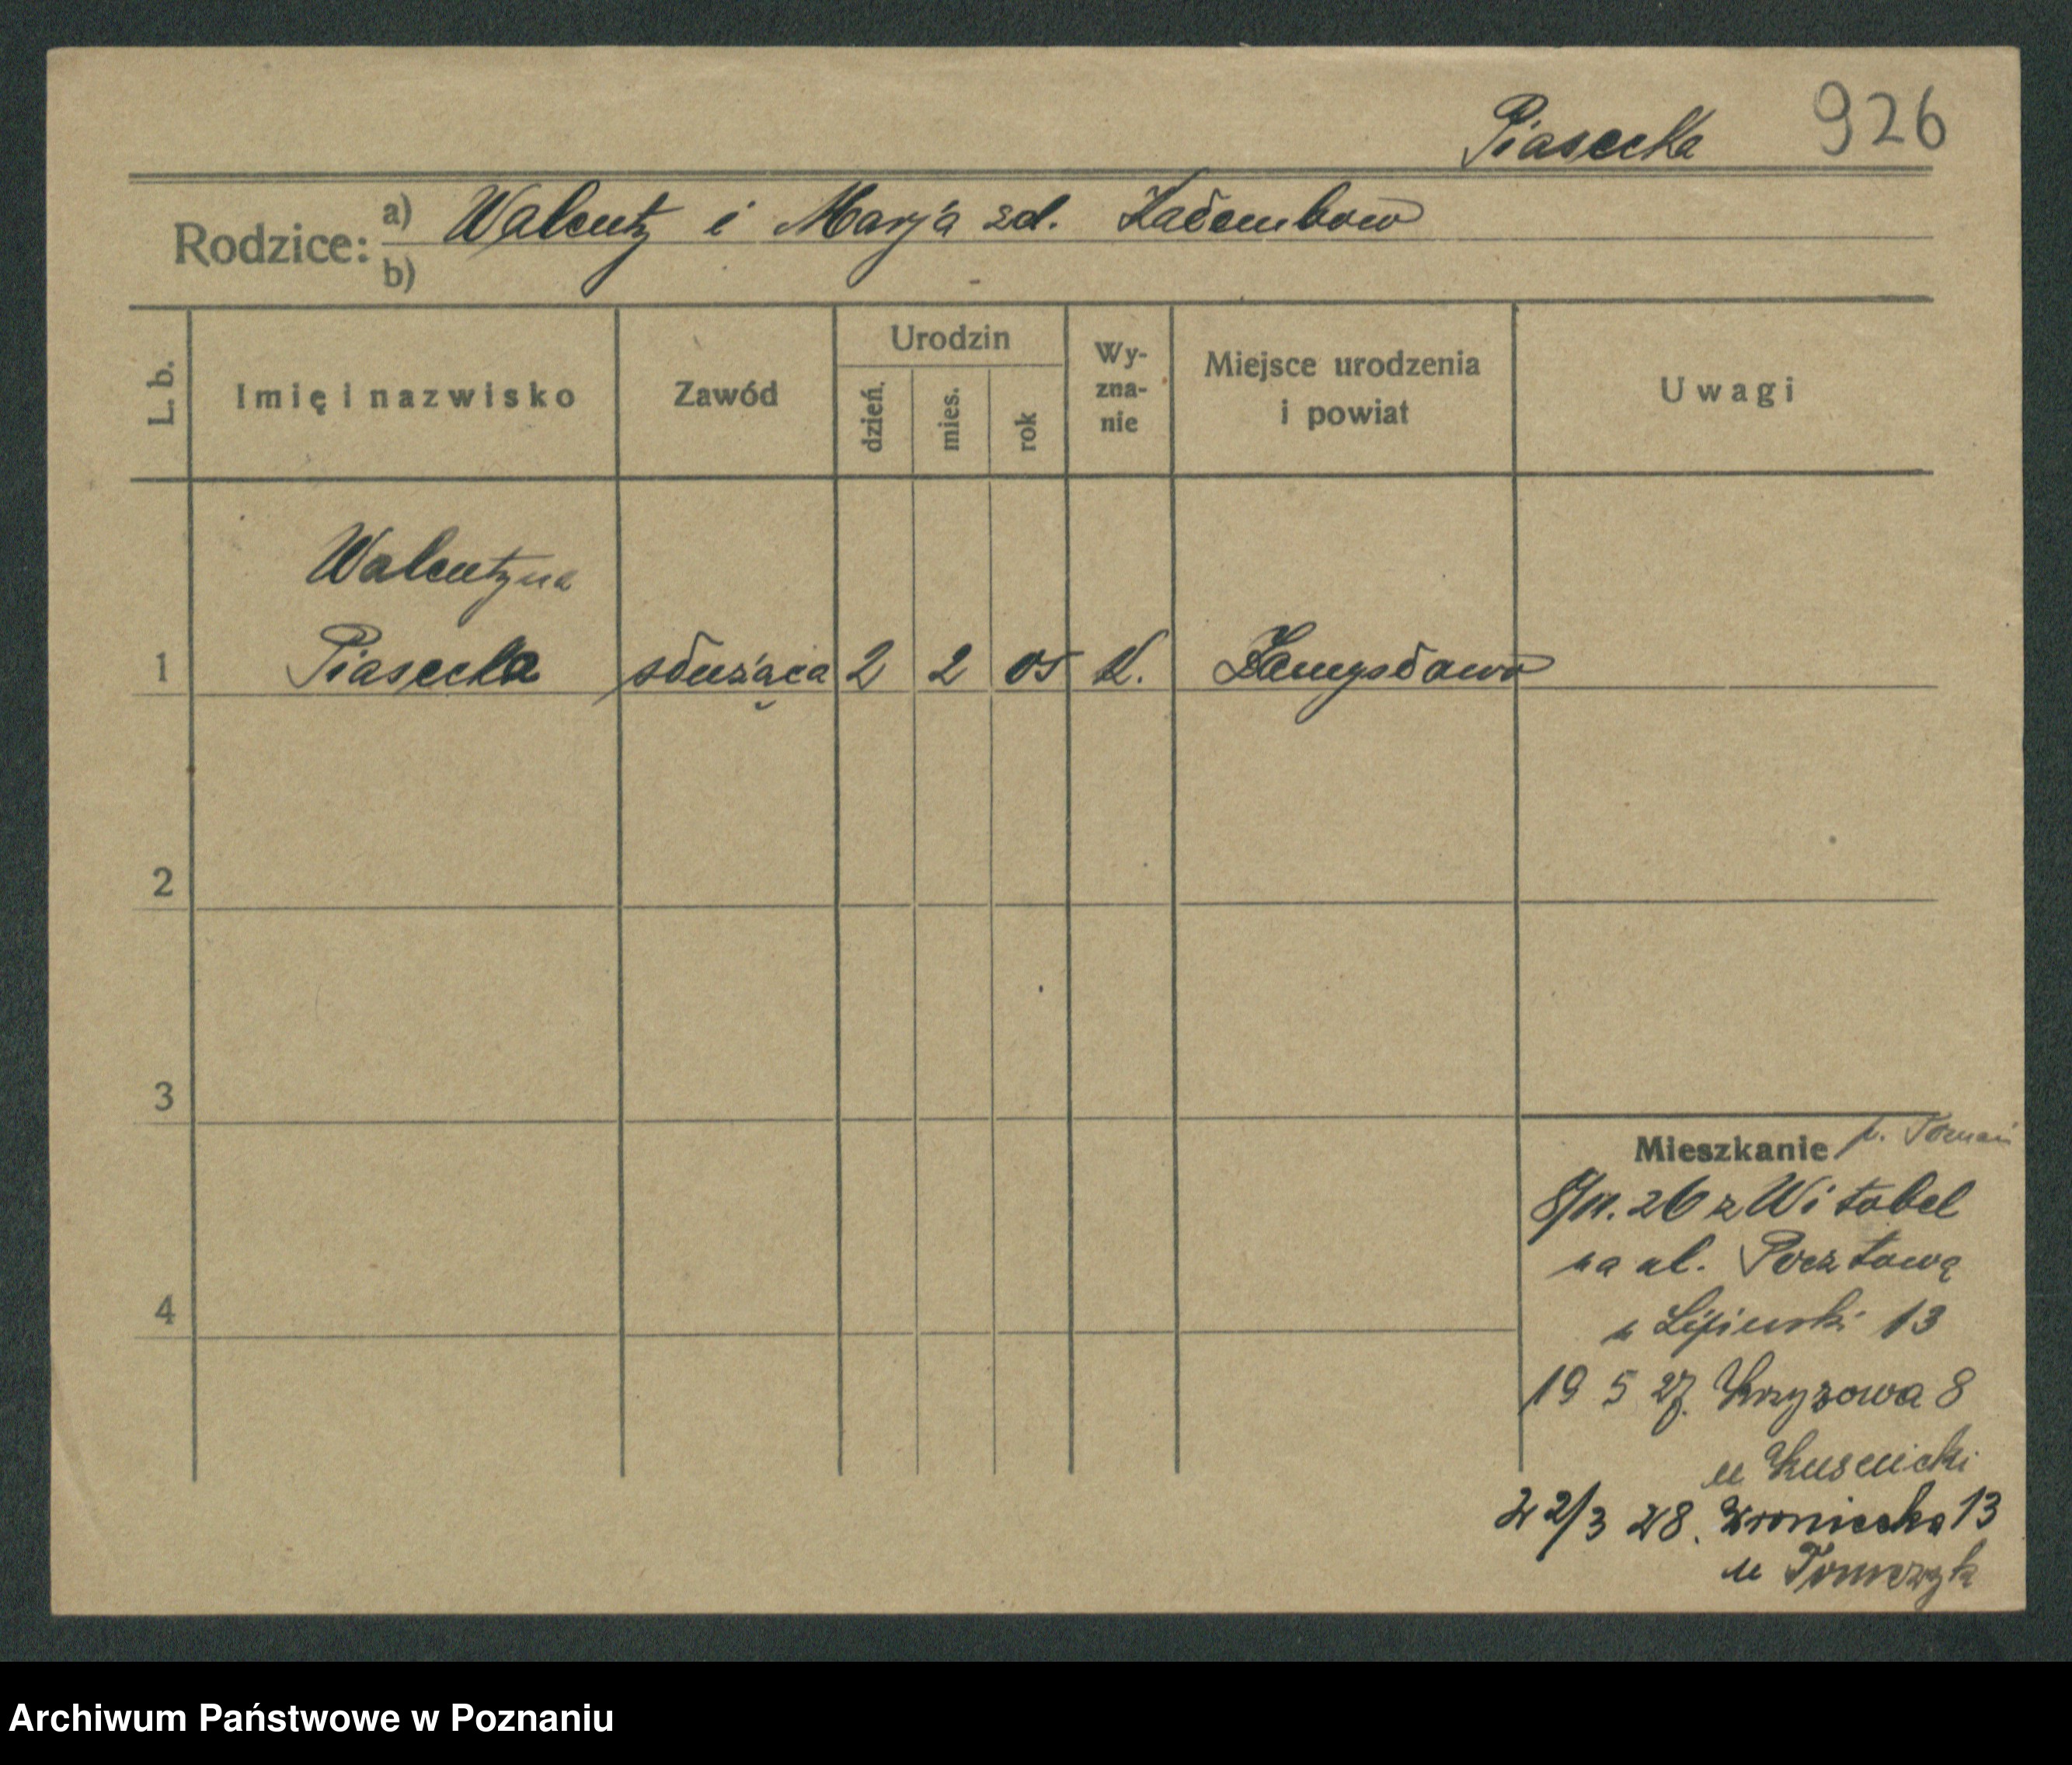 Piasecka 926
Rodzice: a) Walenty i Marja zd. Kałembow
b)
L. b. Imię i nazwisko Zawód Urodzin dzień. mies. rok Wy-zna-nie Miejsce urodzenia i powiat Uwagi
Walentyna
1 Piasecka służąca 2 2 05 K. Zamysłowo
2
3
4
Mieszkanie p.
26 z Witobel
na ul. Pocztową
u Lipiński 13
19 5 27. Krzyżowa 8
u
22/3 28. Wroniecka 13
u Tomczyk
Archiwum Państwowe w Poznaniu